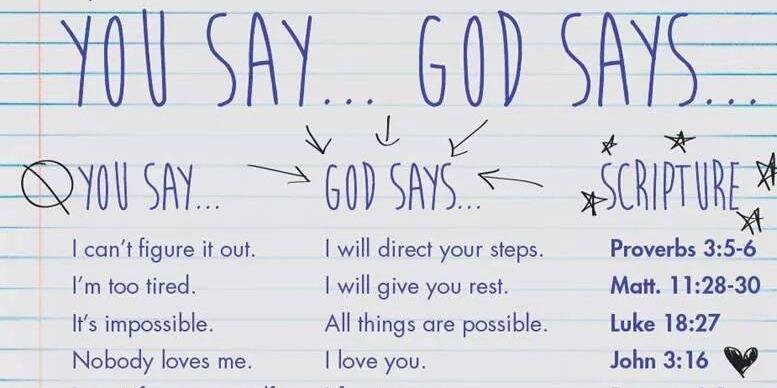 YOU SAY... GOD SAYS...
YOU SAY... GOD SAYS... SCRIPTURE
I can't figure it out. I will direct your steps. Proverbs 3:5-6
I'm too tired. I will give you rest. Matt. 11:28-30
It's impossible. All things are possible. Luke 18:27
Nobody loves me. I love you. John 3:16